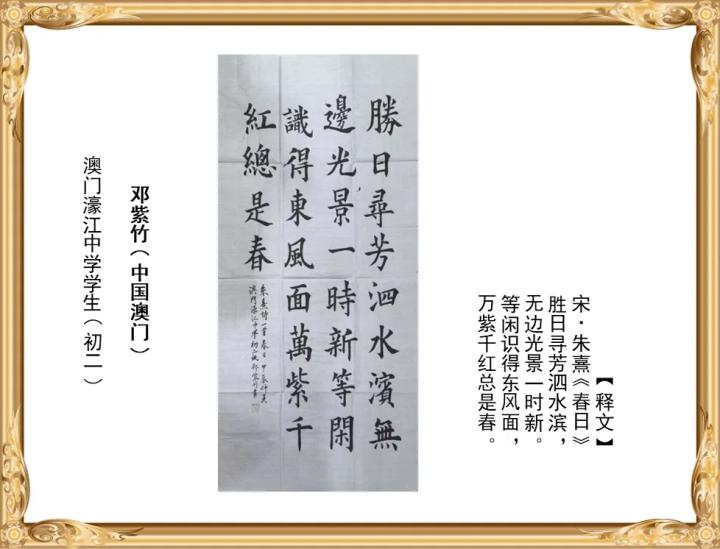 【释文】
宋·朱熹《春日》
胜日寻芳泗水滨，
无边光景一时新。
等闲识得东风面，
万紫千红总是春。
勝日尋芳泗水濱無
邊光景一時新等閑
識得東風面萬紫千
紅總是春
朱熹詩一首春日甲辰仲夏
澳門濠江中學初二級鄧紫竹書
邓紫竹（中国澳门）
澳门濠江中学学生（初二）